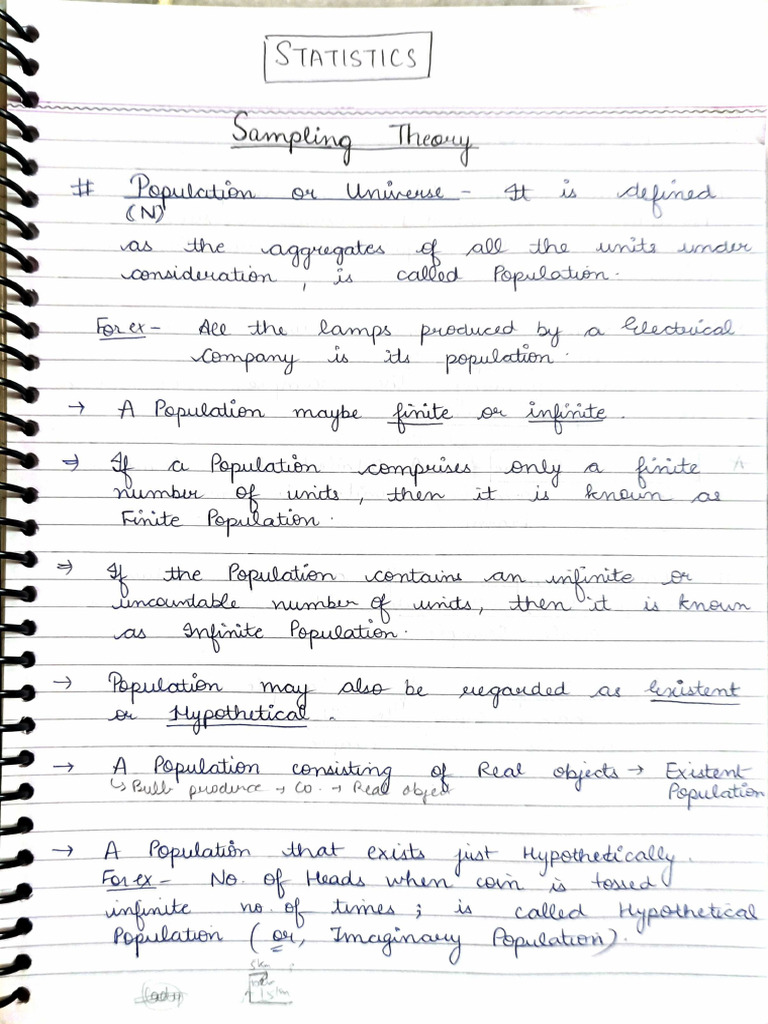 STATISTICS
Sampling Theory
# Population or Universe - It is defined
(N)
as the aggregates of all the units under
consideration, is called Population.
For ex - All the lamps produced by a Electrical
Company is its population.
→ A Population maybe finite or infinite.
⇒ If a Population comprises only a finite
number of units, then it is known as
Finite Population.
⇒ If the Population contains an infinite or
uncoundable number of units, then it is known
as Infinite Population.
→ Population may also be regarded as Existent
or Hypothetical.
→ A Population consisting of Real objects → Existent
↳ Bulb produce → Co. → Real object Population
→ A Population that exists just Hypothetically.
For ex - No. of Heads when coin is tossed
infinite no. of times; is called Hypothetical
Population (or, Imaginary Population).
5km